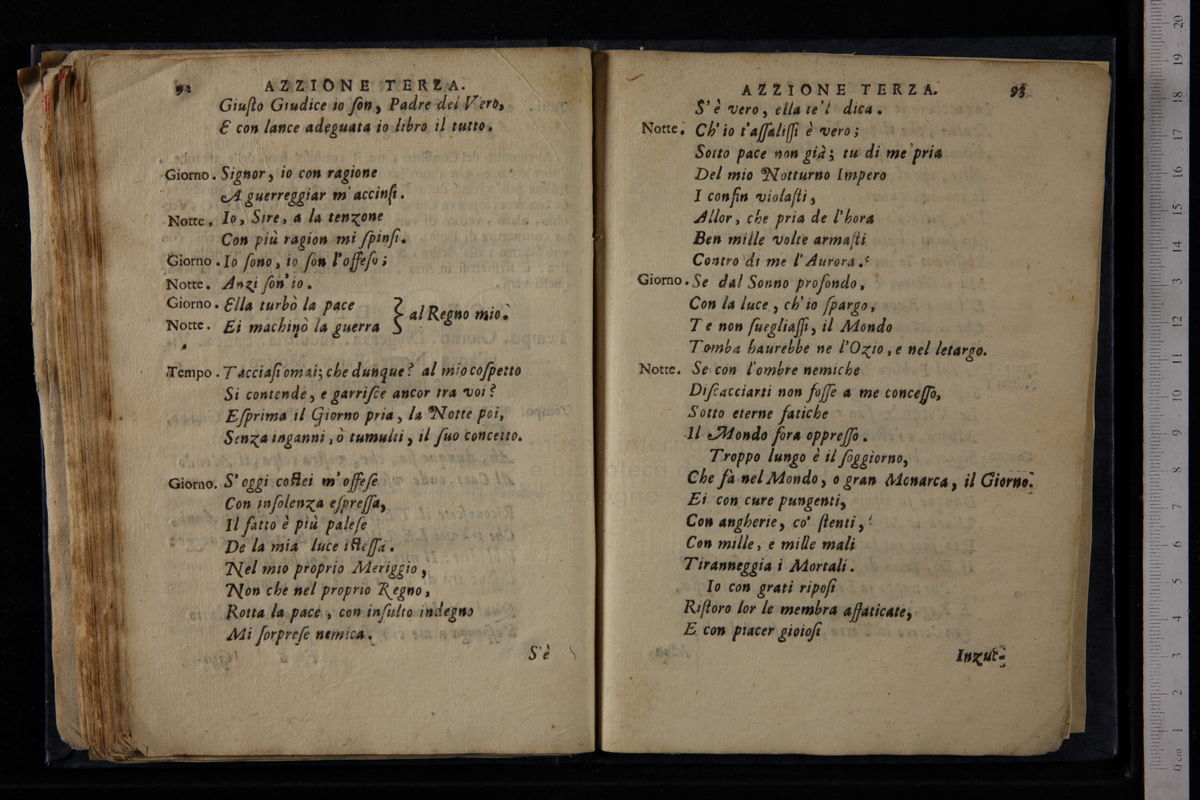 92
AZZIONE TERZA.
Giuſto Giudice io ſon, Padre del Vero,
E con lance adeguata io libro il tutto.
Giorno. Signor, io con ragione
A guerreggiar m'accinſi.
Notte. Io, Sire, a la tenzone
Con più ragion mi ſpinſi.
Giorno. Io ſono, io ſon l'offeſo;
Notte. Anzi ſon'io.
Giorno. Ella turbò la pace
Notte. Ei machinò la guerra } al Regno mio.
Tempo. Tacciaſi omai; che dunque? al mio coſpetto
Si contende, e garriſce ancor tra voi?
Eſprima il Giorno pria, la Notte poi,
Senza inganni, ò tumulti, il ſuo concetto.
Giorno. S'oggi coſtei m'offeſe
Con inſolenza eſpreſſa,
Il fatto è più paleſe
De la mia luce iſteſſa.
Nel mio proprio Meriggio,
Non che nel proprio Regno,
Rotta la pace, con inſulto indegno
Mi ſorpreſe nemica.
S'è
AZZIONE TERZA.
93
S'è vero, ella te'l dica.
Notte. Ch'io t'aſſaliſſi è vero;
Sotto pace non già; tu di me'pria
Del mio Notturno Impero
I confin violaſti,
Allor, che pria de l'hora
Ben mille volte armaſti
Contro di me l'Aurora.
Giorno. Se dal Sonno profondo,
Con la luce, ch'io ſpargo,
Te non ſuegliaſſi, il Mondo
Tomba haurebbe ne l'Ozio, e nel letargo.
Notte. Se con l'ombre nemiche
Diſcacciarti non foſſe a me conceſſo,
Sotto eterne fatiche
Il Mondo fora oppreſſo.
Troppo lungo è il ſoggiorno,
Che fà nel Mondo, o gran Monarca, il Giorno.
Ei con cure pungenti,
Con angherie, co' ſtenti,
Con mille, e mille mali
Tiranneggia i Mortali.
Io con grati ripoſi
Riſtoro lor le membra affaticate,
E con piacer gioioſi
Inzut-